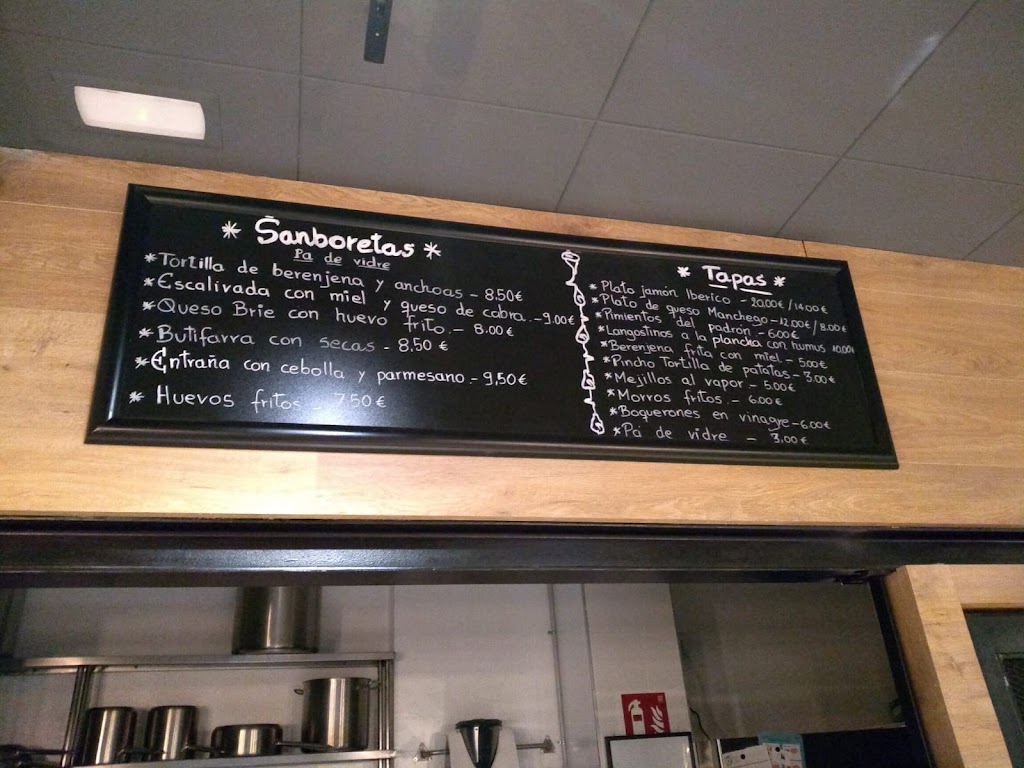 * Sanboretas *
Pa de vidre
* Tortilla de berenjena y anchoas - 8.50€
* Escalivada con miel y queso de cabra.. - 9.00€
* Queso Brie con huevo frito.- 8.00€
* Butifarra con secas - 8,50 €
* Entraña con cebolla y parmesano.- 9,50€
* Huevos fritos - 7'50€
* Tapas *
* Plato jamón Iberico - 20.00€ / 14.00€
* Plato de queso Manchego - 12.00€ / 8.00€
* Pimientos del padrón - 6.00€
* Langostinos a la plancha con humus 10.00€
* Berenjena frita con miel - 5.00€
* Pincho Tortilla de patatas - 3,00€
* Mejillos al vapor - 5.00€
* Morros fritos.- 6.00€
* Boquerones en vinagre - 6.00€
* Pa de vidre - 3,00€